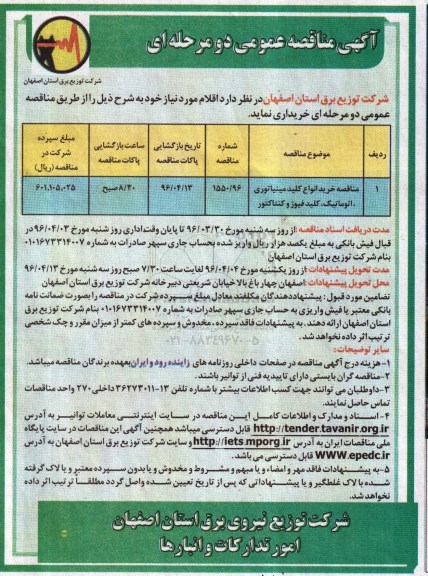 آگهی مناقصه عمومی دو مرحله ای
شرکت توزیع برق استان اصفهان
شرکت توزیع برق استان اصفهان در نظر دارد اقلام مورد نیاز خود به شرح ذیل را از طریق مناقصه
عمومی دو مرحله ای خریداری نماید.
ردیف
موضوع مناقصه
شماره مناقصه
تاریخ بازگشایی پاکات مناقصه
ساعت بازگشایی پاکات مناقصه
مبلغ سپرده شرکت در مناقصه (ریال)
۱
مناقصه خرید انواع کلید مینیاتوری ،اتوماتیک، کلید فیوز و کنتاکتور
۱۵۵۰/۹۶
۹۶/۰۴/۱۳
۸/۳۰ صبح
۶۰۱,۱۰۵,۰۲۵
مدت دریافت اسناد مناقصه : از روز سه شنبه مورخ ۹۶/۰۳/۳۰ تا پایان وقت اداری روز شنبه مورخ ۹۶/۰۴/۰۳ در
قبال فیش بانکی به مبلغ یکصد هزار ریال واریز شده بحساب جاری سپهر صادرات به شماره ۰۱۰۱۶۷۳۳۱۴۰۰۷
بنام شرکت توزیع برق استان اصفهان
مدت تحویل پیشنهادات : از روز یکشنبه مورخ ۹۶/۰۴/۰۴ لغایت ساعت ۷/۳۰ صبح روز سه شنبه مورخ ۹۶/۰۴/۱۳
محل تحویل پیشنهادات : اصفهان چهارباغ بالا خیابان شریعتی دبیرخانه شرکت توزیع برق استان اصفهان
تضامین مورد قبول : پیشنهاددهندگان مکلفند معادل مبلغ سپرده شرکت در مناقصه را بصورت ضمانت نامه
بانکی معتبر یا فیش واریزی به حساب جاری سپهر صادرات به شماره ۰۱۰۱۶۷۳۳۱۴۰۰۷ بنام شرکت توزیع برق
استان اصفهان ارائه دهند. به پیشنهادات فاقد سپرده ،مخدوش و سپرده های کمتر از میزان مقرر و چک شخصی
ترتیب اثر داده نخواهد شد.
سایر توضیحات :
۱- هزینه درج آگهی مناقصه در صفحات داخلی روزنامه های زاینده رود و ایران بعهده برندگان مناقصه میباشد.
۲- مناقصه گران بایستی دارای تاییدیه فنی از توانیر باشند.
۳- داوطلبان می توانند جهت کسب اطلاعات بیشتر با شماره تلفن ۱۳-۳۶۲۷۳۰۱۱ داخلی ۲۷۰ واحد مناقصات
تماس حاصل نمایند.
۴- اسناد و مدارک و اطلاعات کامل این مناقصه در سایت اینترنتی معاملات توانیر به آدرس
http://tender.tavanir.org.ir قابل دسترسی میباشد همچنین آگهی این مناقصات در سایت پایگاه
ملی مناقصات ایران به آدرس http://iets.mporg.ir و سایت شرکت توزیع برق استان اصفهان به آدرس
WWW.epedc.ir قابل دسترسی می باشد.
۵- به پیشنهادات فاقد مهر و امضاء و یا مبهم و مشروط و مخدوش و یا بدون سپرده معتبر و یا لاک گرفته
شده با لاک غلطگیر و یا پیشنهاداتی که پس از تاریخ تعیین شده واصل گردد مطلقاً ترتیب اثر داده
نخواهد شد.
شرکت توزیع نیروی برق استان اصفهان
امور تدارکات و انبارها